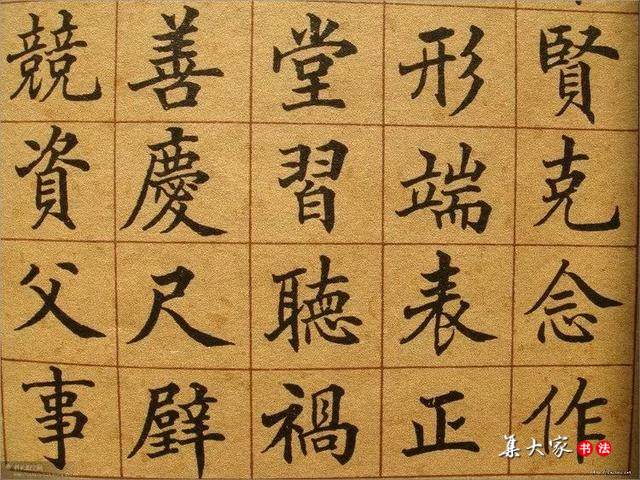 賢克念作
形端表正
堂習聽禍
善慶尺璧
競資父事
集大家书法